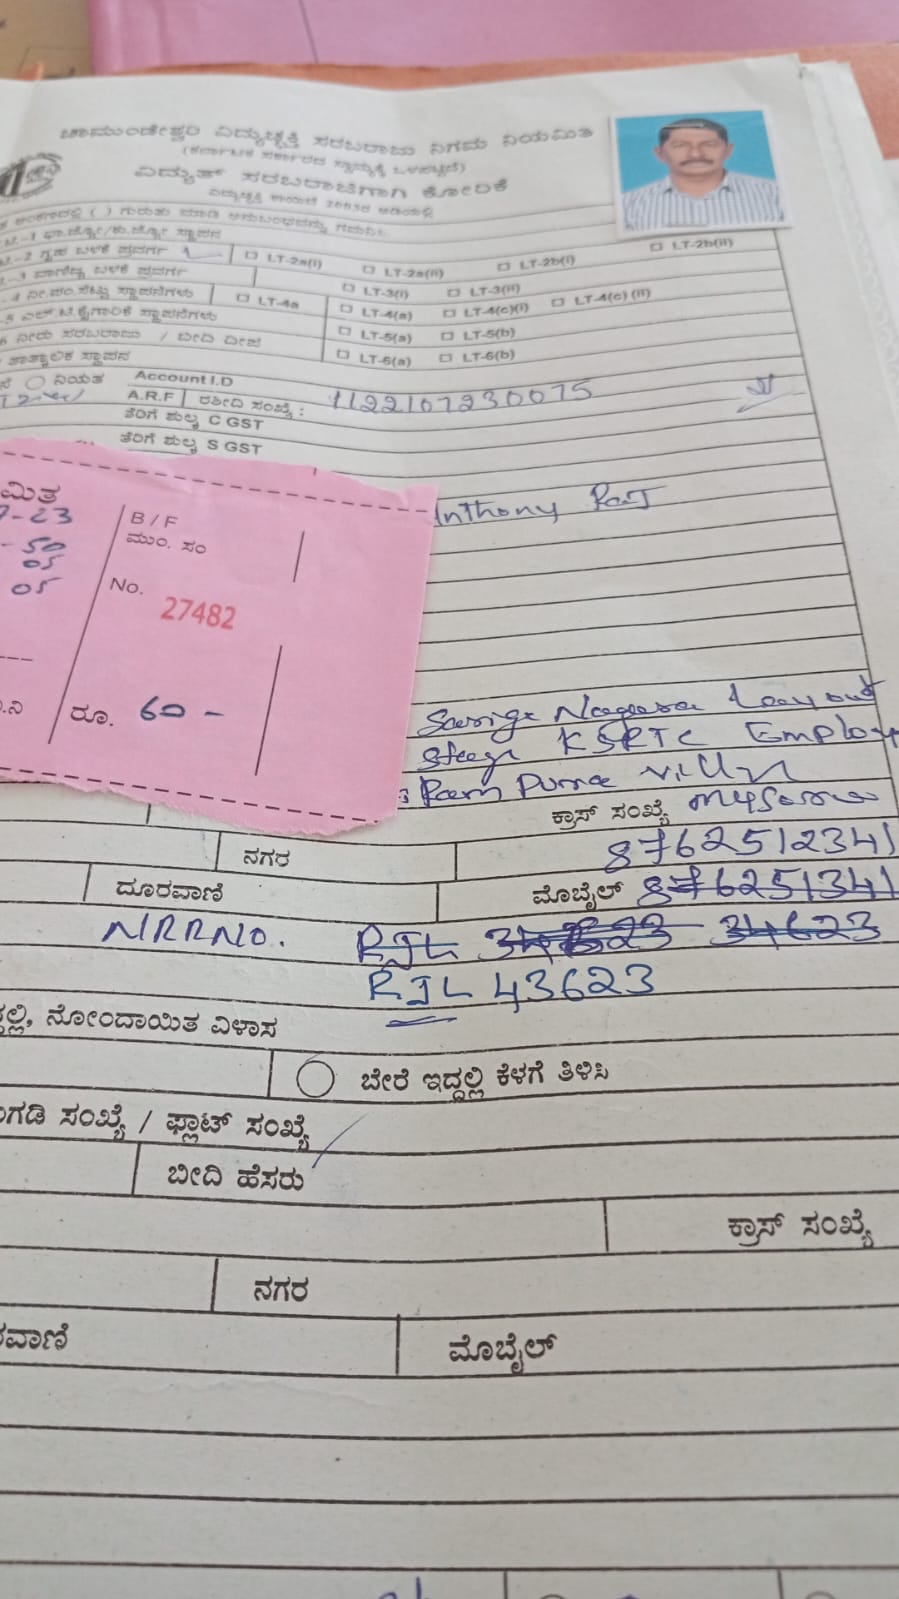 ಚಾಮುಂಡೇಶ್ವರಿ ವಿದ್ಯುಚ್ಛಕ್ತಿ ಸರಬರಾಜು ನಿಗಮ ನಿಯಮಿತ
(ಕರ್ನಾಟಕ ಸರ್ಕಾರದ ಸ್ವಾಮ್ಯಕ್ಕೆ ಒಳಪಟ್ಟಿದೆ)
ವಿದ್ಯುತ್ ಸರಬರಾಜಿಗಾಗಿ ಕೋರಿಕೆ
ವಿದ್ಯುಚ್ಛಕ್ತಿ ಕಾಯಿದೆ 2003ರ ಅಡಿಯಲ್ಲಿ
( ) ಗುರುತು ಮಾಡಿ
ಗೃಹ ಬಳಕೆ ಪ್ರವರ್ಗ LT-2a(i) LT-2a(ii) LT-2b(i) LT-2b(ii)
ಬಳಕೆ ಪ್ರವರ್ಗ LT-3(i) LT-3(ii)
ನೀ.ಪಂ.ಸೆಟ್ಟು ಸ್ಥಾಪನೆಗಳು LT-4a LT-4(a) LT-4(c)(i) LT-4(c) (ii)
ಎಲ್.ಟಿ.ಕೈಗಾರಿಕೆ ಸ್ಥಾಪನೆಗಳು LT-5(a) LT-5(b)
ನೀರು ಸರಬರಾಜು / ಬೀದಿ ದೀಪ LT-6(a) LT-6(b)
ತಾತ್ಕಾಲಿಕ ಸ್ಥಾಪನ
ನಿಯತ Account I.D
A.R.F ರಶೀದಿ ಸಂಖ್ಯೆ : 1122107230075
ತೆರಿಗೆ ಶುಲ್ಕ C GST
ತೆರಿಗೆ ಶುಲ್ಕ S GST
ಮಿತ
-23
B / F
- 50
ಮುಂ. ಸಂ
05
05
No.
27482
ರೂ. 60 -
Anthony Raj
Layout
KSRTC Employ
ಕ್ರಾಸ್ ಸಂಖ್ಯೆ
ನಗರ 8762512341
ದೂರವಾಣಿ ಮೊಬೈಲ್ 876251341
NRRNO. RJL 34623
RJL 43623
ನೋಂದಾಯಿತ ವಿಳಾಸ
ಬೇರೆ ಇದ್ದಲ್ಲಿ ಕೆಳಗೆ ತಿಳಿಸಿ
ಗಡಿ ಸಂಖ್ಯೆ / ಫ್ಲಾಟ್ ಸಂಖ್ಯೆ
ಬೀದಿ ಹೆಸರು
ಕ್ರಾಸ್ ಸಂಖ್ಯೆ
ನಗರ
ರವಾಣಿ ಮೊಬೈಲ್